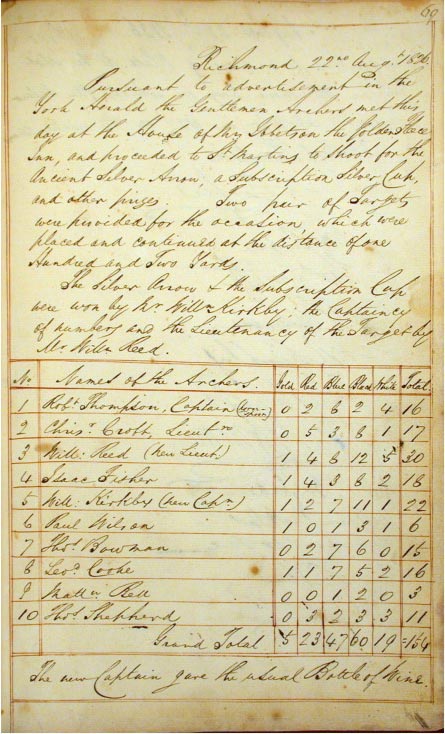 69
Richmond 22nd Augt 1826.
Pursuant to advertisement in the
York Herald the Gentlemen Archers met this
day at the House of Mr Ibbetson the Golden Fleece
Inn, and proceeded to St Martins to shoot for the
Ancient Silver Arrow, a Subscription Silver Cup,
and other prizes. Two pair of Targets
were provided for the occasion, which were
placed and continued at the distance of one
Hundred and Two Yards.
The Silver Arrow & the Subscription Cup
were won by Mr Willm Kirkby; the Captaincy
of numbers and the Lieutenancy of the Target by
Mr Willm Reed.
No Names of the Archers. Gold Red Blue Black White Total
1 Robt Thompson, Captain (won Spoon) 0 2 6 2 4 16
2 Chrisr Croft Lieutnt 0 5 3 8 1 17
3 Willm Reed (New Lieut) 1 4 8 12 5 30
4 Isaac Fisher 1 4 3 8 2 18
5 Willm Kirkby (new Capn) 1 2 7 11 1 22
6 Paul Wilson 1 0 1 3 1 6
7 Thos Bowman 0 2 7 6 0 15
8 Leod Cooke 1 1 7 5 2 16
9 Mattw Reed 0 0 1 2 0 3
10 Thos Shepherd 0 3 2 3 3 11
Grand Total 5 23 47 60 19 =154
The new Captain gave the usual Bottle of Wine.